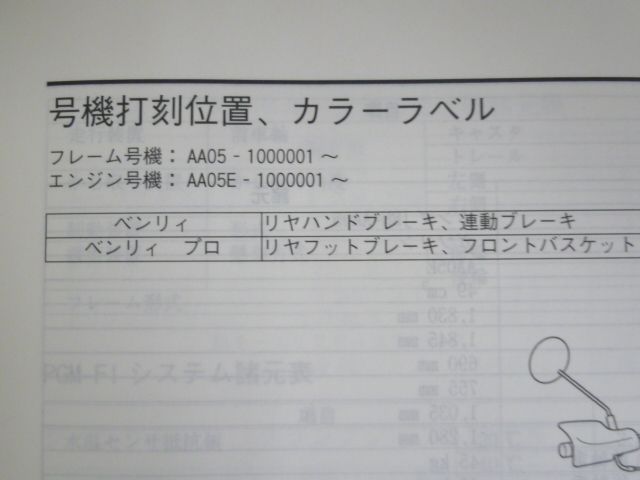 号機打刻位置、カラーラベル
フレーム号機： AA05 - 1000001 ～
エンジン号機： AA05E - 1000001 ～
ベンリィ リヤハンドブレーキ、連動ブレーキ
ベンリィ　プロ リヤフットブレーキ、フロントバスケット